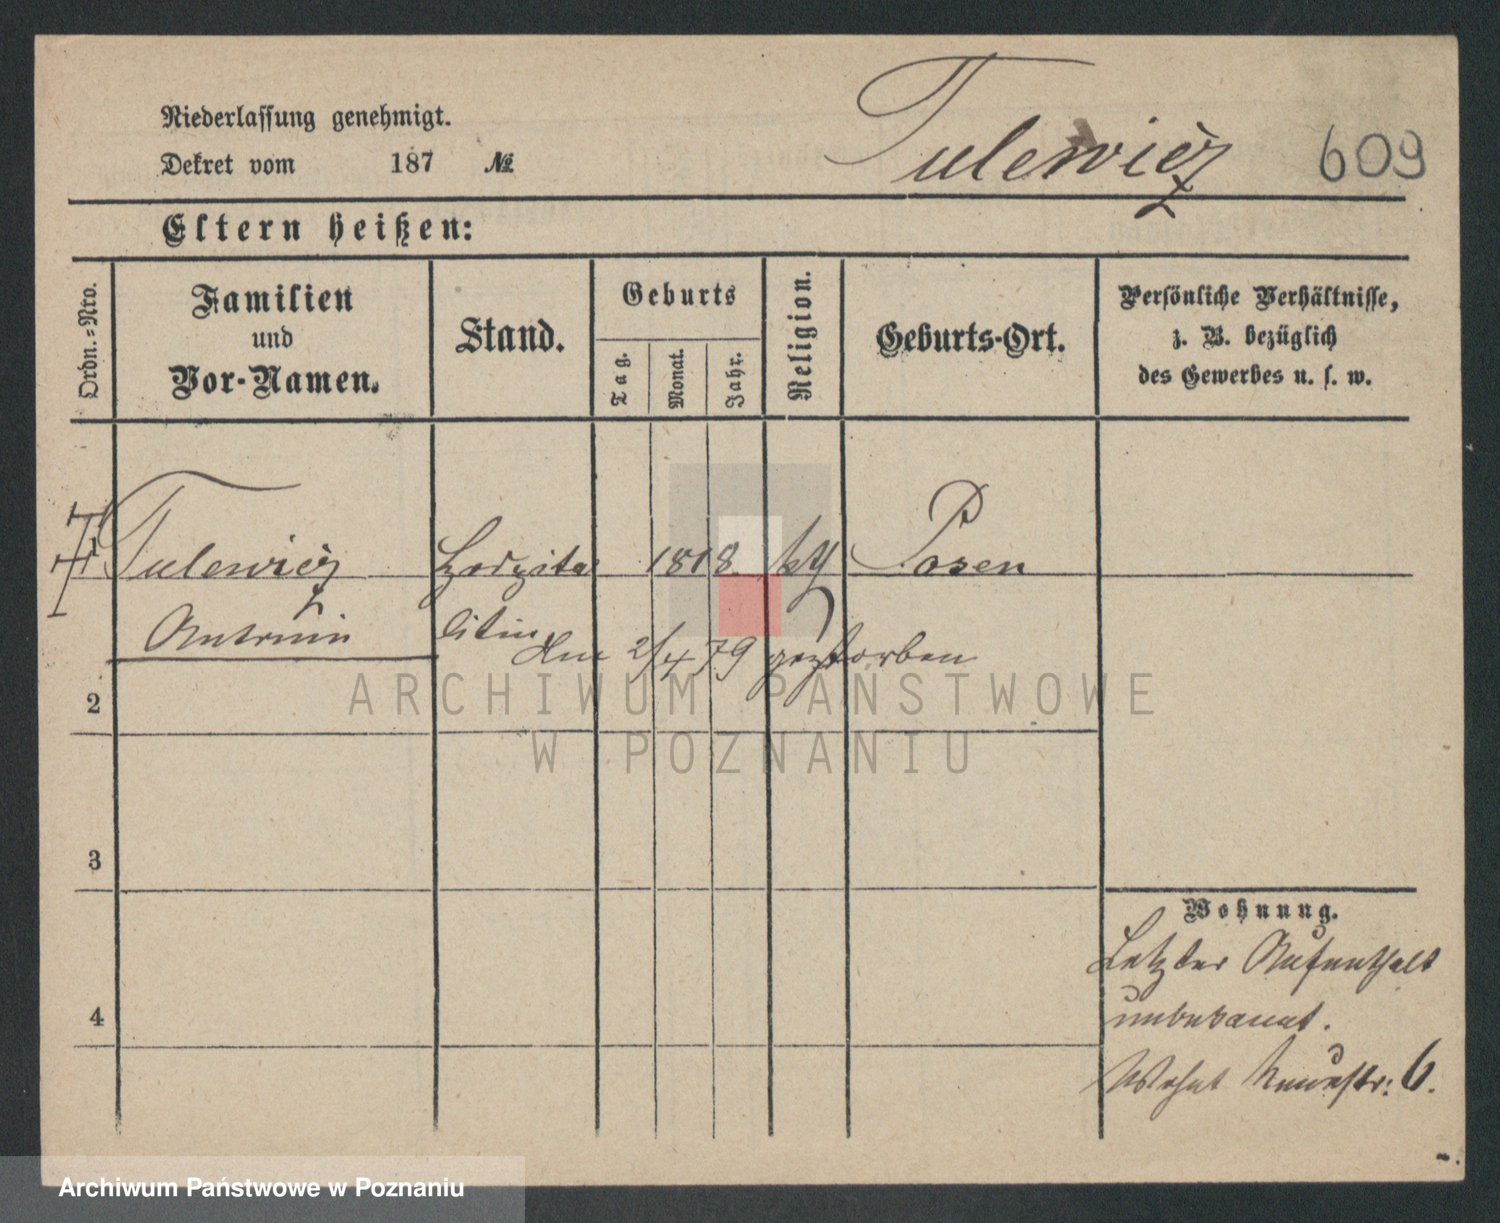 Niederlassung genehmigt.
Dekret vom 187 №
Tulewicz 609
Eltern heißen:
Ordn.=Nro.
Familien
und
Vor-Namen.
Stand.
Geburts
Tag.
Monat.
Jahr.
Religion.
Geburts-Ort.
Persönliche Verhältnisse,
z. B. bezüglich
des Gewerbes u. s. w.
1 Tulewicz Hospita 1818 Posen
litin
den 2/4 79 gestorben
2
3
4
Wohnung.
Letzter Aufenthalt
unbekannt.
Wohnt 6.
ARCHIWUM PAŃSTWOWE
W POZNANIU
Archiwum Państwowe w Poznaniu